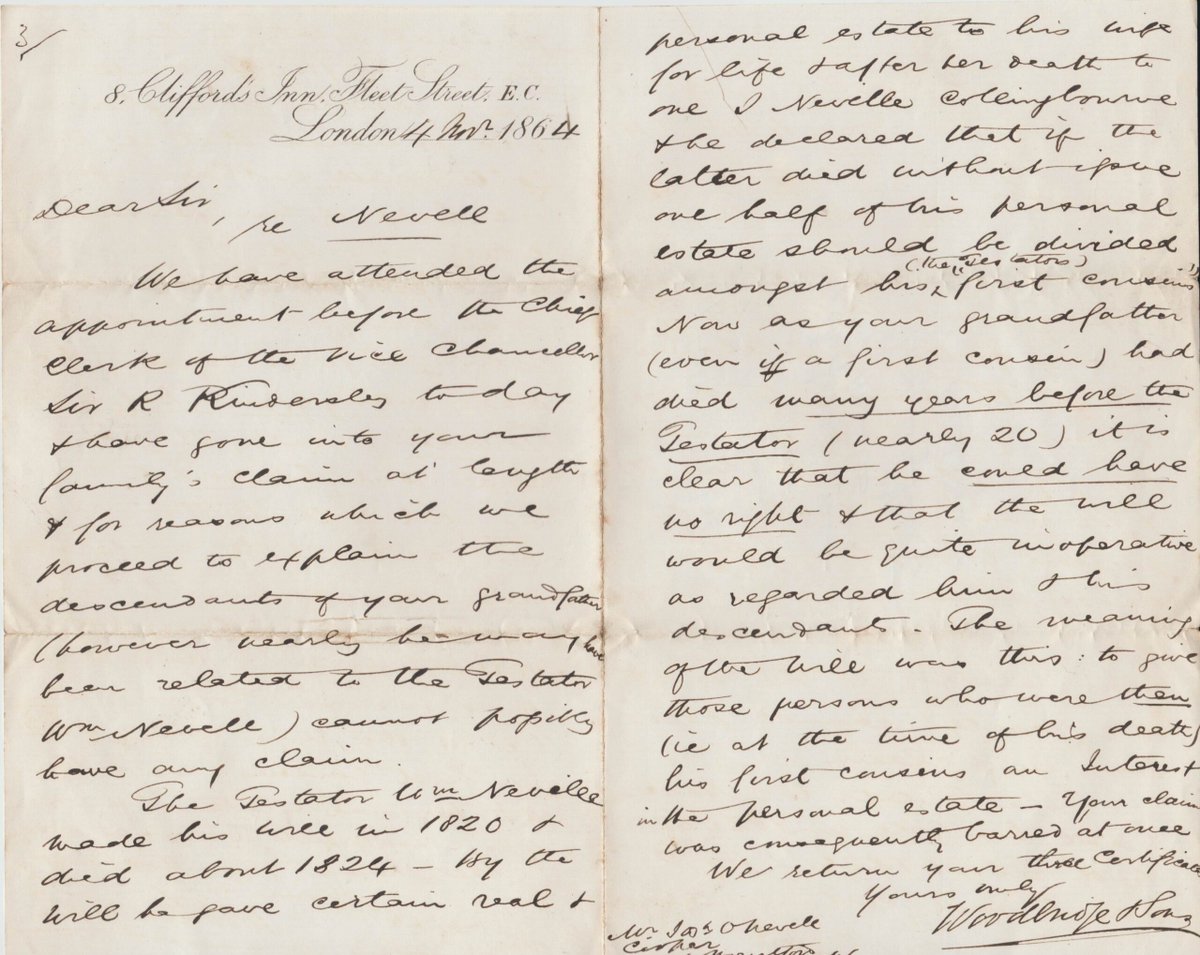 3/
8, Clifford's Inn, Fleet Street, E.C.
London 4 Novr. 1864
Dear Sir,
re Nevell
We have attended the
appointment before the Chief
Clerk of the Vice Chancellor
Sir R Kindersley to day
& have gone into your
family's claim at length
& for reasons which we
proceed to explain the
descendants of your grandfather
(however nearly he may have
been related to the Testator
Wm Nevell) cannot possibly
have any claim.
The Testator Wm Neville
made his will in 1820 &
died about 1824 – By the
will he gave certain real &
personal estate to his wife
for life & after her death to
one J Nevelle Collingbourne
& he declared that if the
latter died without issue
one half of his personal
estate should be divided
amongst his (the Testators) first cousins
Now as your grandfather
(even if a first cousin) had
died many years before the
Testator (nearly 20) it is
clear that he could have
no right & that the will
would be quite inoperative
as regarded him & his
descendants. The meaning
of the will was this: to give
those persons who were then
(ie at the time of his death)
his first cousins an Interest
in the personal estate – Your claim
was consequently barred at once
We return your three Certificates
Yours truly
Woodbridge & Sons
Mr Jas O Nevell